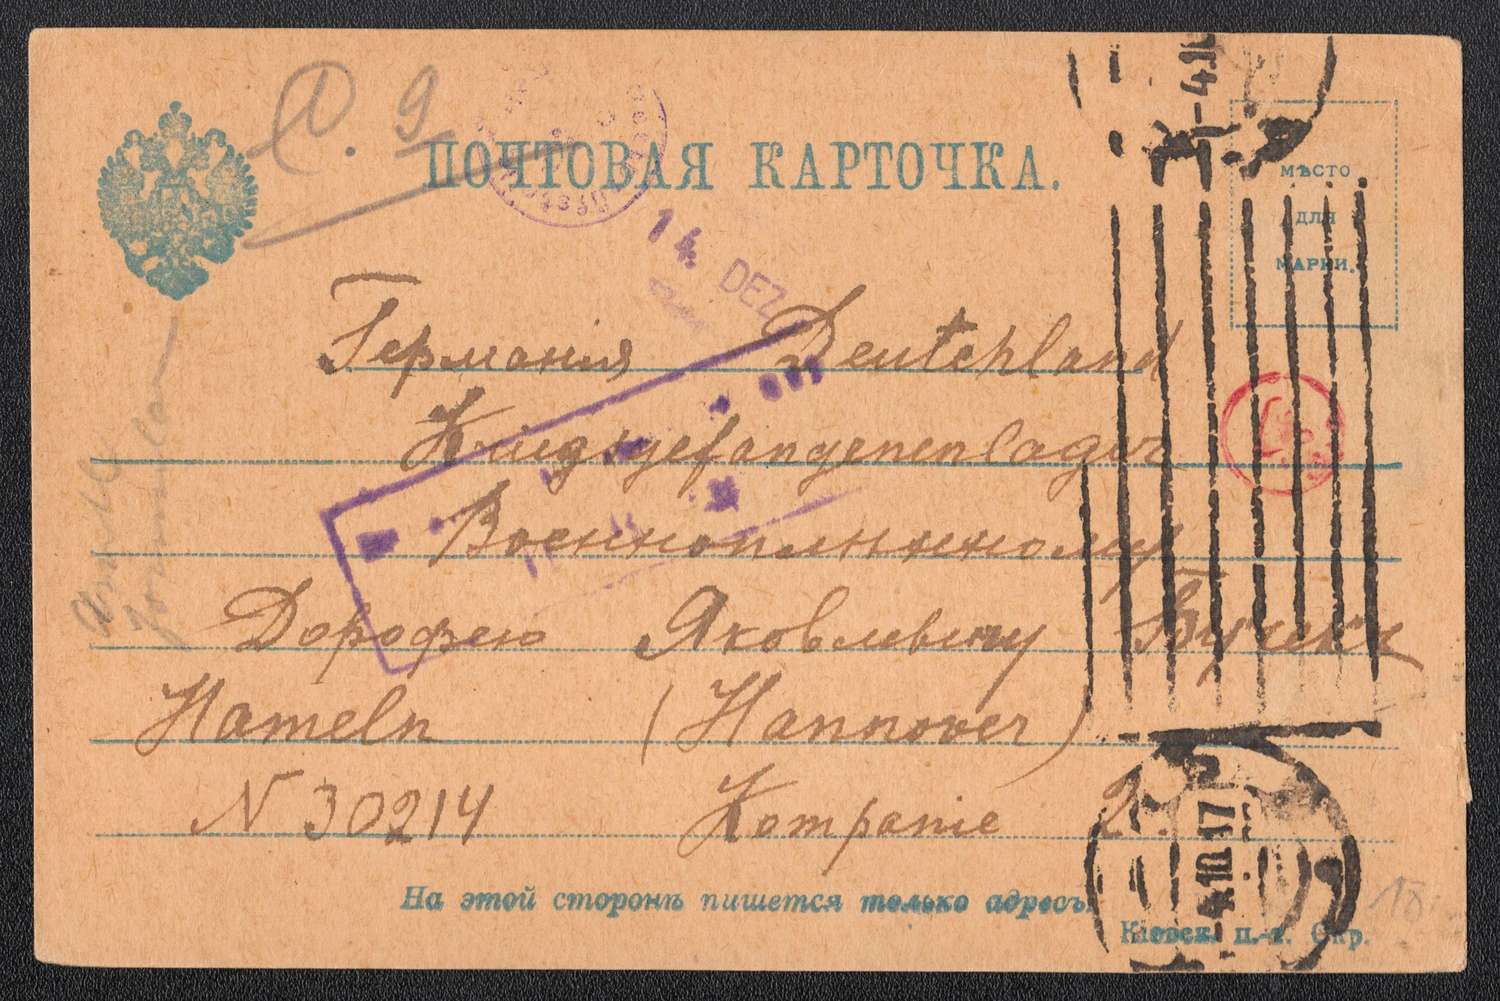 A. 9
ПОЧТОВАЯ КАРТОЧКА.
МѢСТО
ДЛЯ
МАРКИ.
14. DEZ.
Германія Deutchland
Kriegsgefangenenlager
Военноплѣнному
Дорофею Яковлевичу
Hameln (Hannover)
N 30214 Kompanie 2.
На этой сторонѣ пишется только адресъ.
Кіевск. п.-т. Окр.
-4.10.17
18